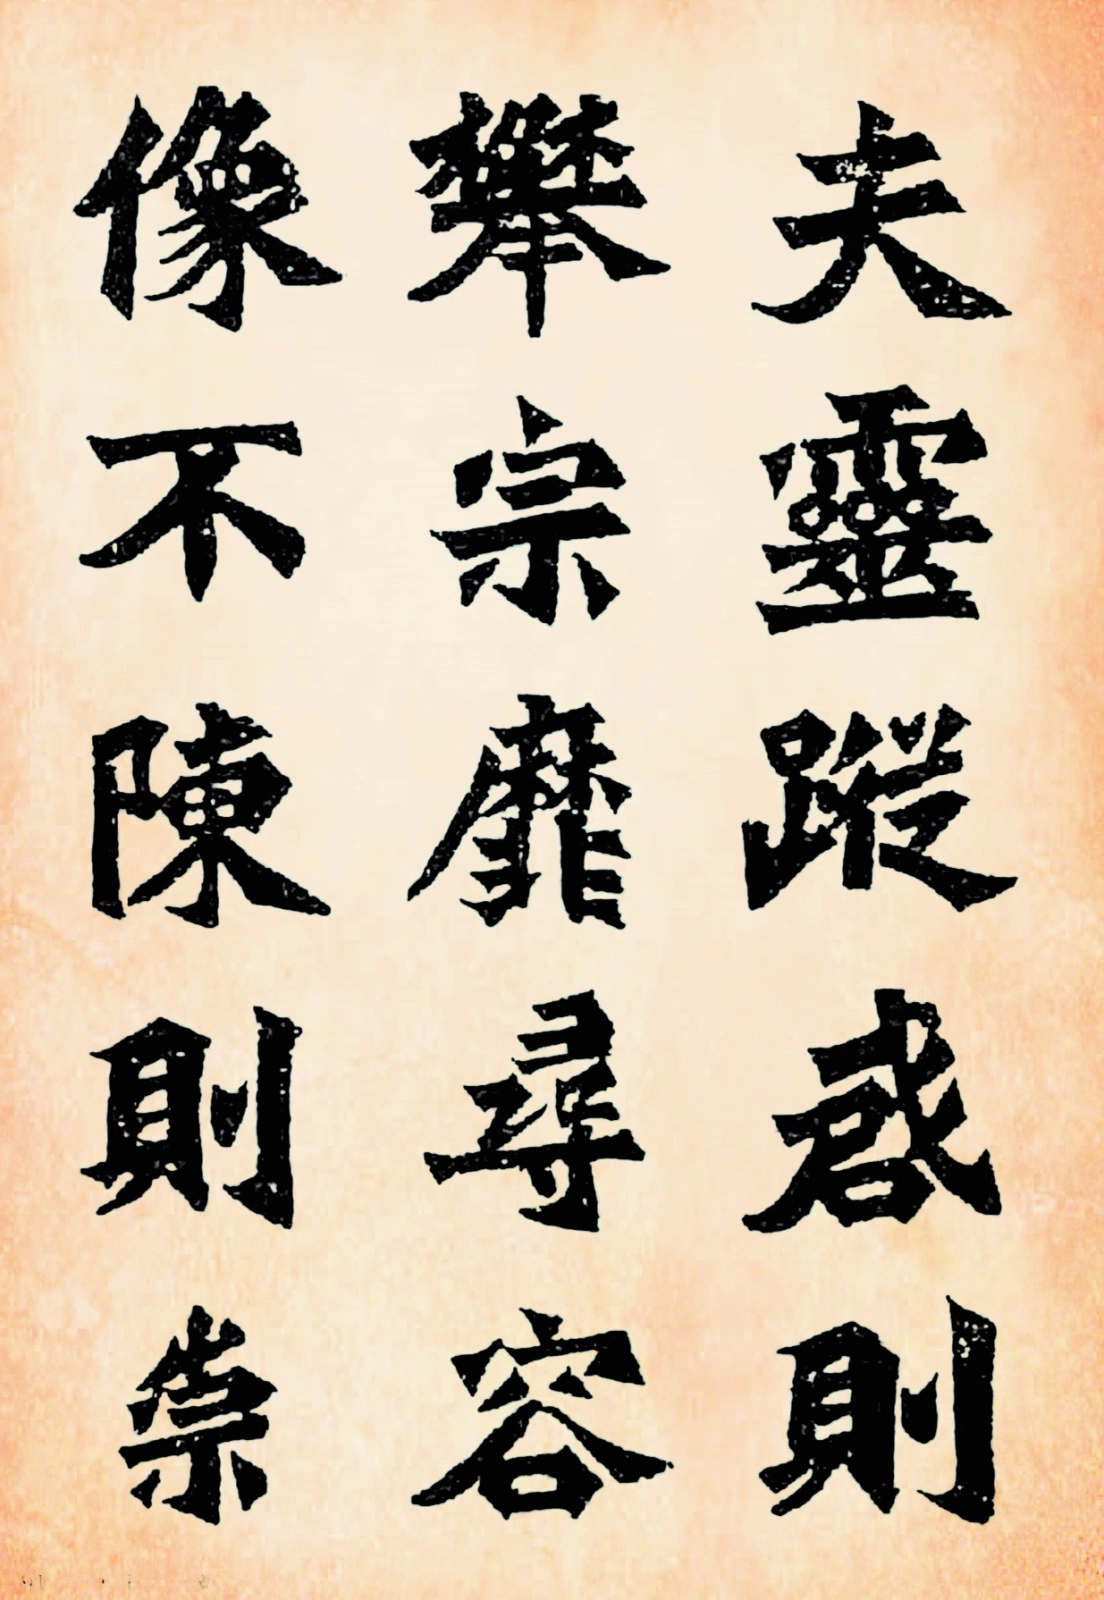 夫靈蹤啟則
攀宗靡尋容
像不陳則崇